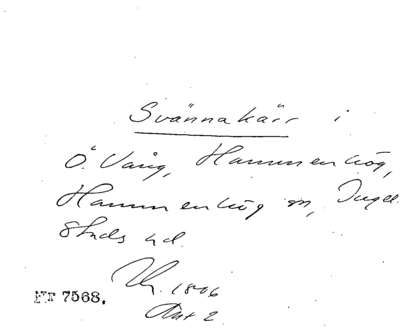 Svännakärr i
Ö. Vång, Hammenhög,
Hammenhög sn, Ingel-
stads hd.
1806
Akt 2
Nr 7568.